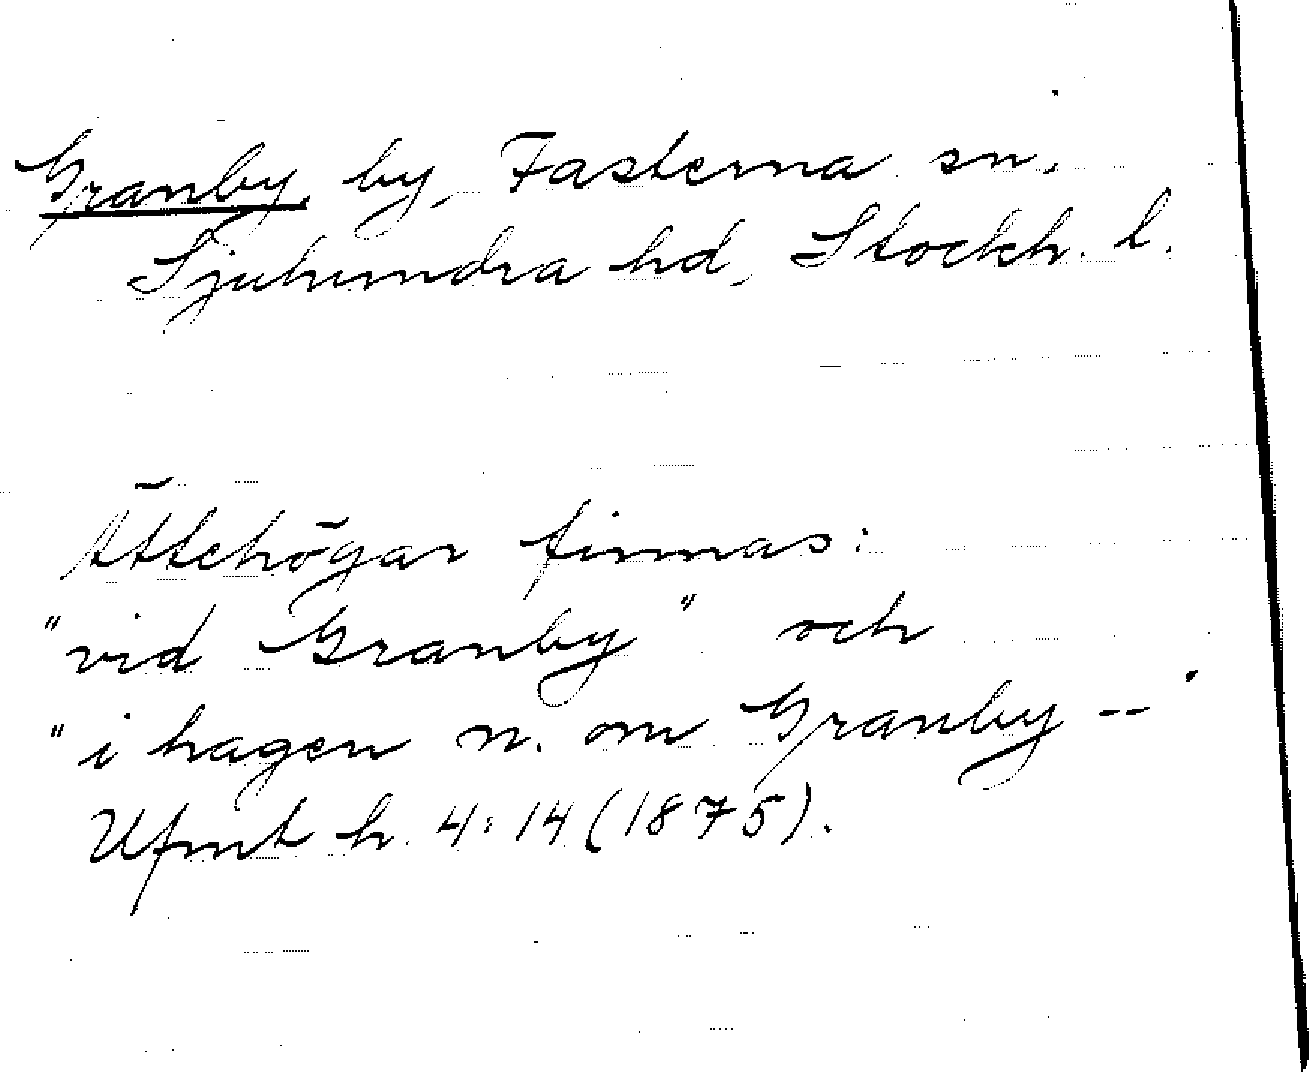 Granby, by, Fasterna sn,
Sjuhundra hd, Stockh. l.
Ättehögar finnas:
"vid Granby" och
"i hagen n. om Granby --"
Ufmt h. 4:14 (1875).